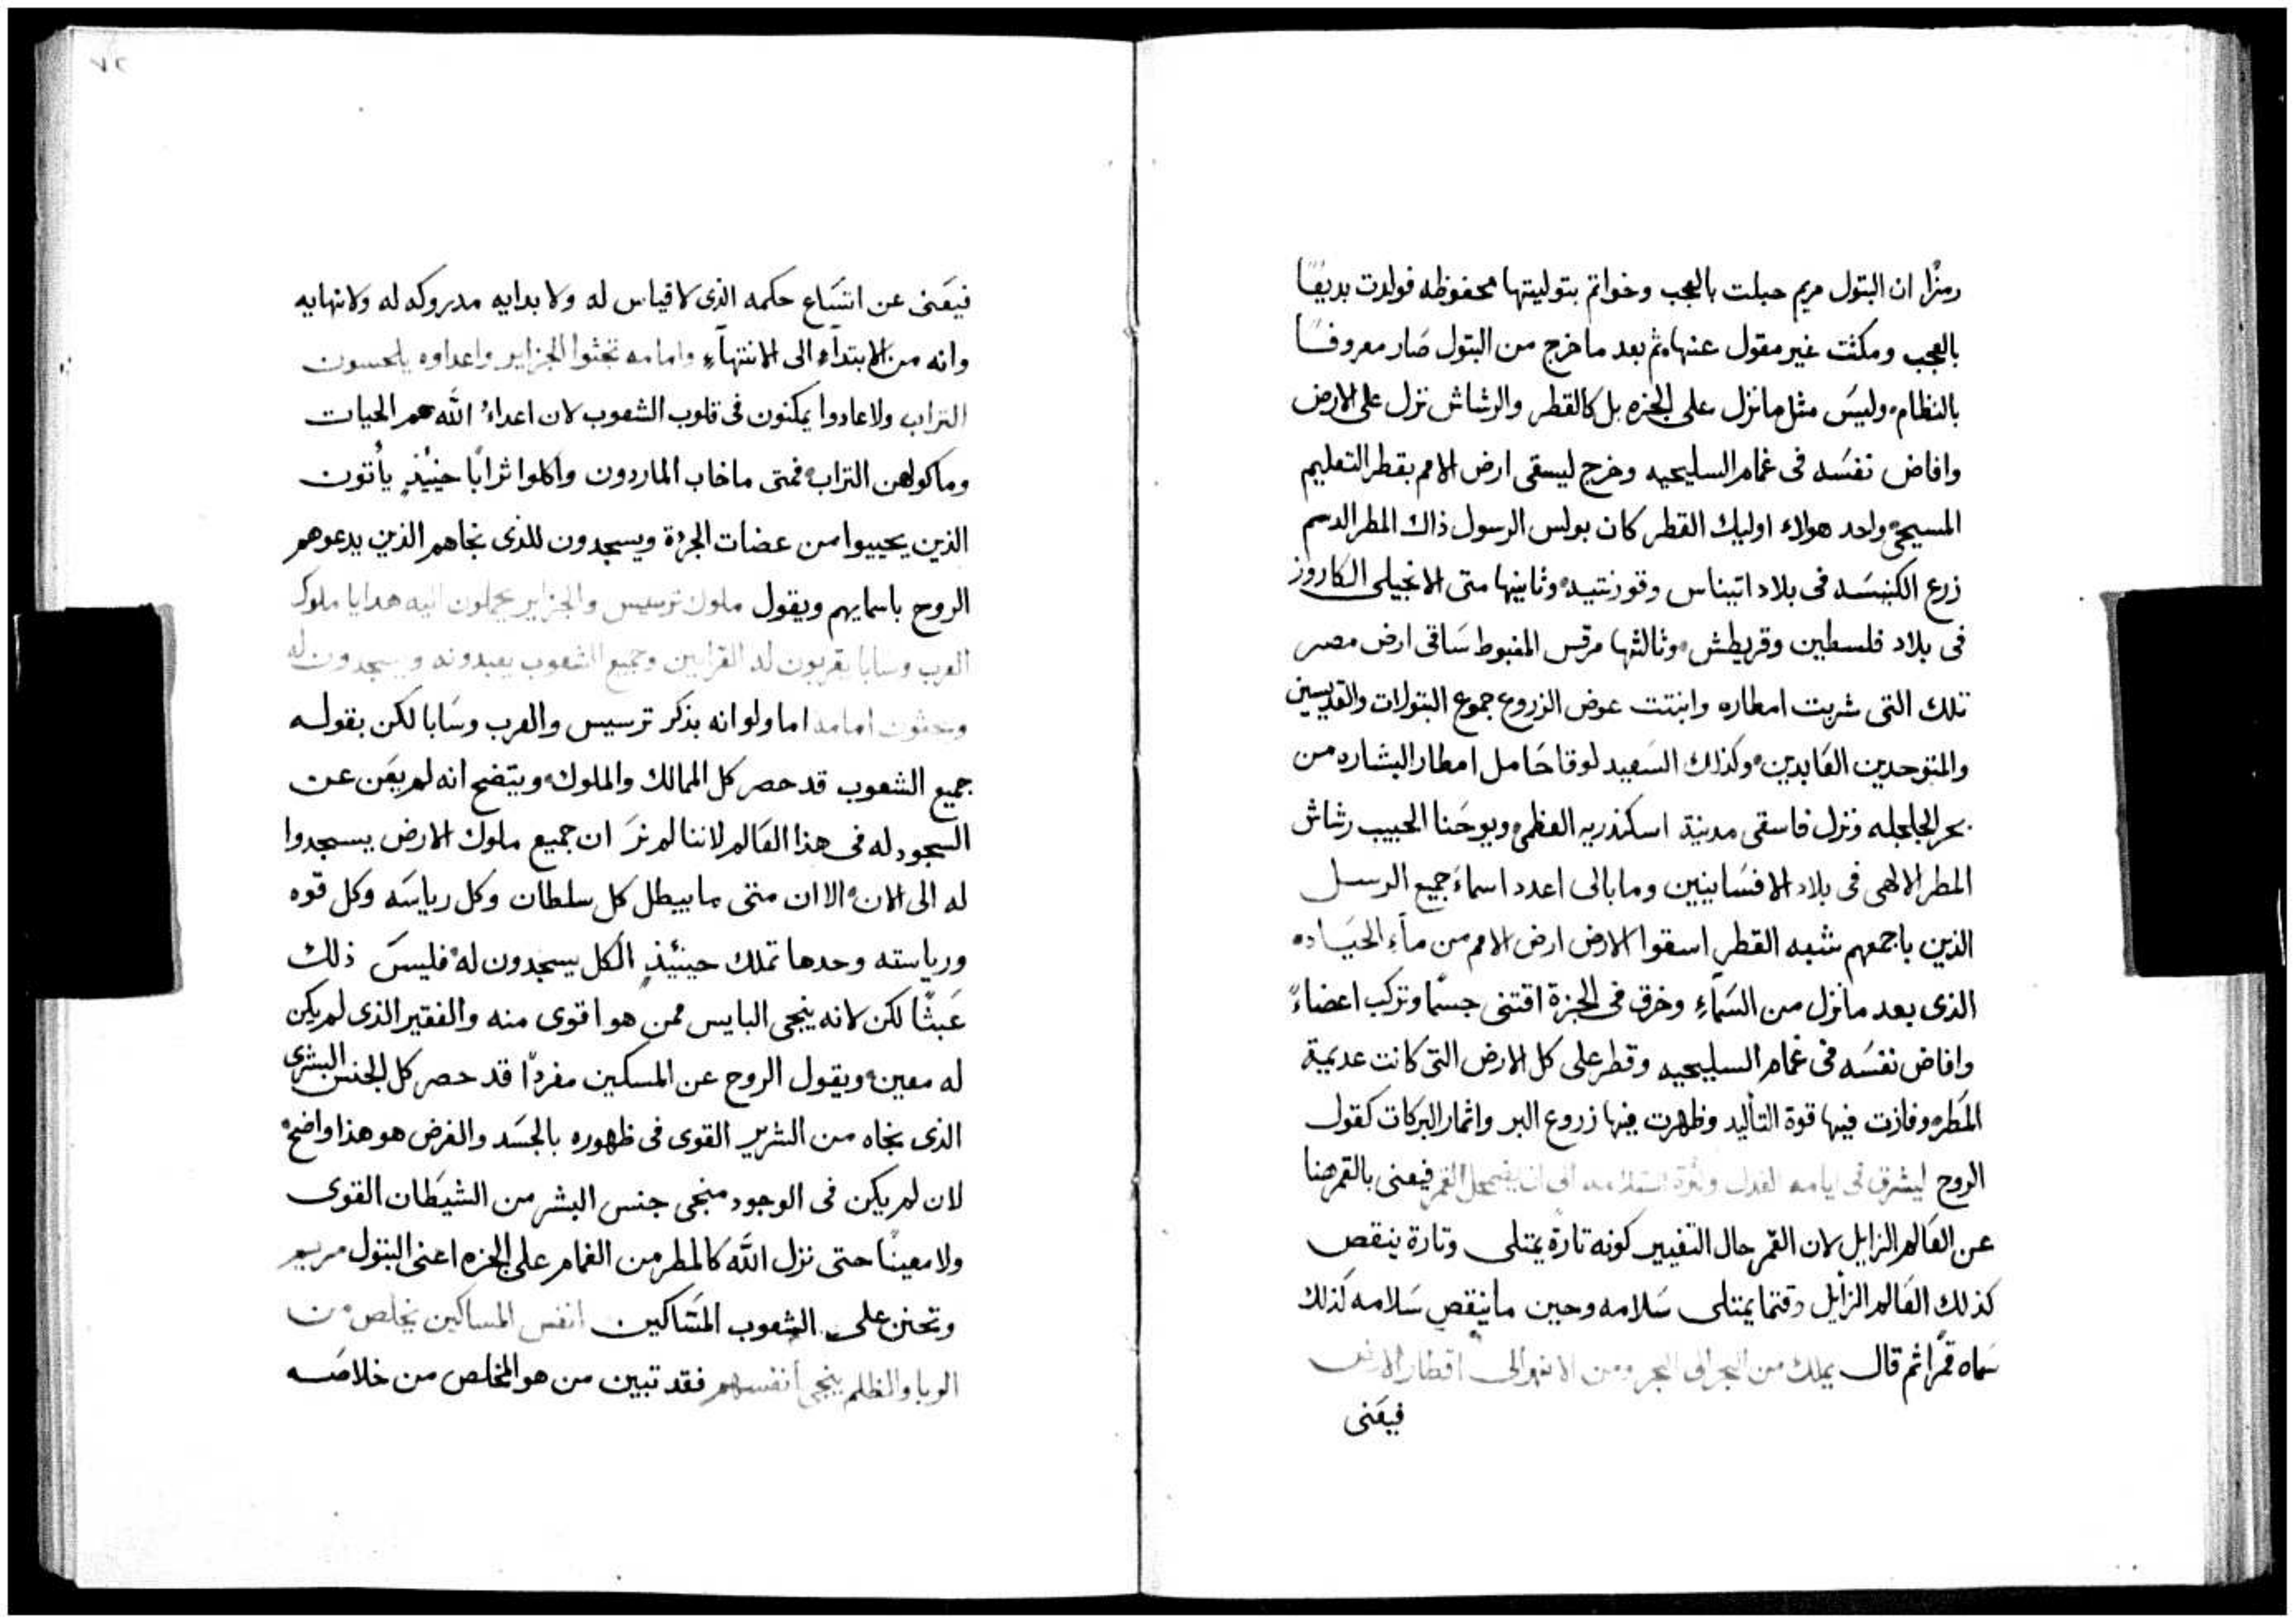 رمزًا ان البتول مريم حبلت بالعجب وخواتم بتوليتها محفوظه فولدت بديعًا
بالعجب ومكثت غير مقول عنها، ثم بعد ما خرج من البتول صَار معروفًا
بالنظام، وليسَ مثل ما نزل على الجزه بل كالقطر والرشاش نزل على الارض
وافاض نفسَه فى غمام السليحيه وخرج ليسقى ارض الامم بقطر التعليم
المسيحى، واحد هولاء اوليك القطر كان بولس الرسول ذاك المطر الدسم
زرع الكنيسَه فى بلاد اتيناس وقورنتيه، وثانيها متى الانجيلى الكاروز
فى بلاد فلسطين وقريطش، وثالثها مرقس المغبوط سَاقى ارض مصر
تلك التى شربت امطاره وانبتت عوض الزروع جموع البتولات والقديسين
والمتوحدين العَابدين، وكذلك السَعيد لوقا حَامل امطار البشاره من
بحر الجلجله ونزل فاسقى مدينة اسكندريه العظمى، ويوحَنا الحبيب رشاش
المطر الالهى فى بلاد الافسَاينيين وما بالى اعدد اسماءَ جميع الرسل
الذين باجمعهم شبه القطر اسقوا الارض ارض الامم من مآءِ الحيَاده
الذى بعد ما نزل من السَمآءِ وخرق فى الجزة اقتنى جسمًا وتركب اعضاءً
وافاض نفسَه فى غمام السليحيه وقطر على كل الارض التى كانت عديمة
المَطر، وفازت فيها قوة التأليد وظهرت فيها زروع البر واثمار البركات كقول
الروح ليشرق فى ايامه العدل وكثرة السَلامه الى ان يضمحل القمر فيعنى بالقمر هنا
عن العَالم الزايل لان القمر حال التغيير كونه تارةً يمتلى وتارة ينقص
كذلك العَالم الزايل وقتما يمتلى سَلامه وحين ما ينقص سَلامه لذلك
سَماه قمرًا ثم قال يملك من البحر الى البحر ومن الانهر الى اقطار الارض
فيعَنى
٧٢
فيعَنى عن اتسَاع حكمه الذى لا قياس له ولا بدايه مدروكه له ولا نهايه
وانه من الابتدآءِ الى الانتهآءِ وامامه تجثوا الجزاير واعداوه يلحسون
التراب ولا عادوا يمكنون فى قلوب الشعوب لان اعداءُ اللّه هم الحيات
وماكولهن التراب، فمتى ما خاب الماردون واكلوا ترابًا حينيْذٍ يأتون
الذين يحييوا من عضات الجردة ويسجدون للذى نجاهم الذين يدعوهم
الروح باسمايهم ويقول ملوك ترسيس والجزاير يحملون اليه هدايا ملوك
العرب وسابا يقربون له القرابين وجميع الشعوب يعبدونه ويسجدون له
ويجثون امامه اما ولو انه بذكر ترسيس والعرب وسَابا لكن بقوله
جميع الشعوب قد حصر كل الممالك والملوك، ويتضح انه لم يعَن عن
السجود له فى هذا العَالم لاننا لم نرَ ان جميع ملوك الارض يسجدوا
له الى الان، الا ان متى ما يبطل كل سلطان وكل رياسَه وكل قوه
ورياسته وحدها تملك حينيْذٍ الكل يسجدون له، فليسَ ذلك
عَبثًا لكن لانه ينجى البايس ممن هو اقوى منه والفقير الذى لم يكن
له معين، ويقول الروح عن المسكين مفردًا قد حصر كل الجنس البشرى
الذى نجاه من الشرير القوى فى ظهوره بالجسَد والغرض هو هذا واضح،
لان لم يكن فى الوجود منجى جنس البشر من الشيَطان القوى
ولا معينًا حتى نزل اللّه كالمطر من الغمام على الجزه اعنى البتول مريم
وتحنن على الشعوب المسَاكين انفس المساكين يخلص من
الوبا والظلم ينجى أنفسهم فقد تبين من هو المخلص من خلاصَه